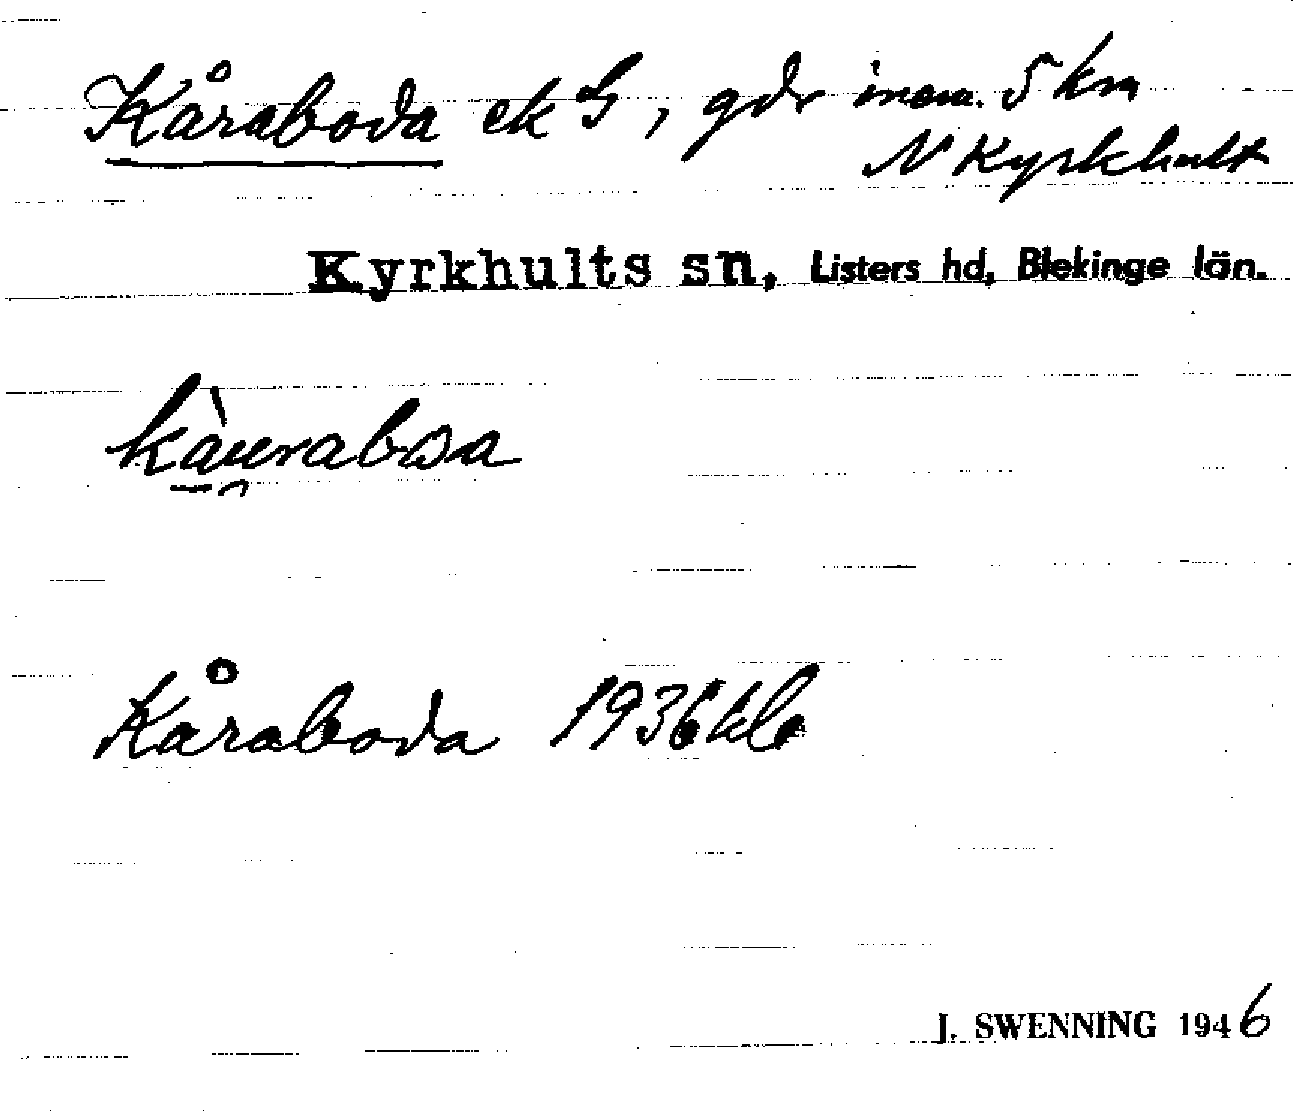 Kåraboda ek G, gdr inom. 5 km
N Kyrkhult
Kyrkhults sn, Listers hd, Blekinge län.
kàurabωa
Kåraboda 1936 kb
J. SWENNING 1946